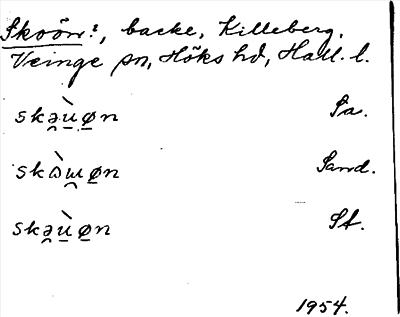 Skoön?, backe, Killeberg.
Veinge sn, Höks hd, Hall. l.
skə̯ù̱ø̱n Sa.
skɷ̀ɯ̯ø̱n Sand.
skə̯ù̱ø̱n St.
1954.